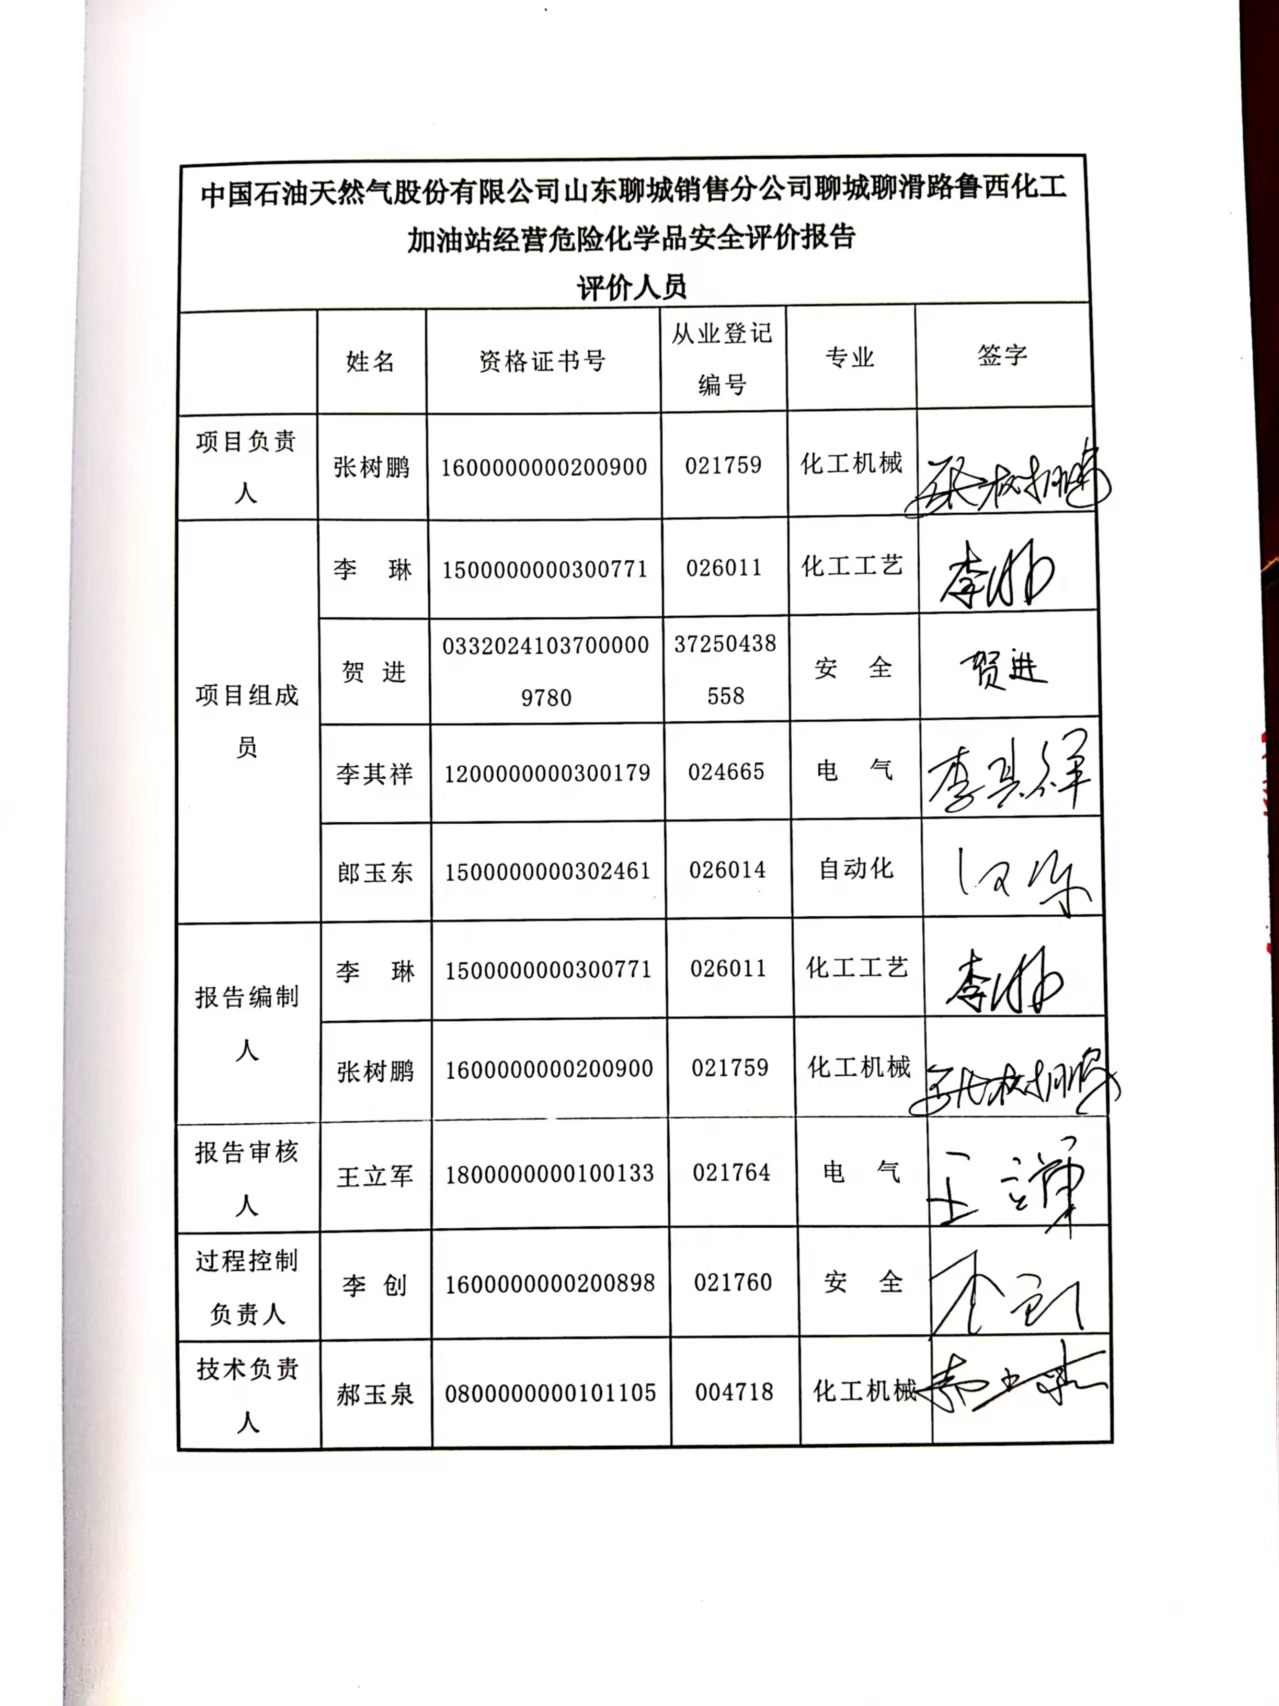 中国石油天然气股份有限公司山东聊城销售分公司聊城聊滑路鲁西化工
加油站经营危险化学品安全评价报告
评价人员
姓名 资格证书号 从业登记编号 专业 签字
项目负责人 张树鹏 1600000000200900 021759 化工机械 张树鹏
项目组成员 李 琳 1500000000300771 026011 化工工艺 李琳
贺 进 03320241037000009780 37250438558 安 全 贺进
李其祥 1200000000300179 024665 电 气 李其祥
郎玉东 1500000000302461 026014 自动化
报告编制人 李 琳 1500000000300771 026011 化工工艺 李琳
张树鹏 1600000000200900 021759 化工机械 张树鹏
报告审核人 王立军 1800000000100133 021764 电 气 王立军
过程控制负责人 李 创 1600000000200898 021760 安 全 李创
技术负责人 郝玉泉 0800000000101105 004718 化工机械 郝玉泉